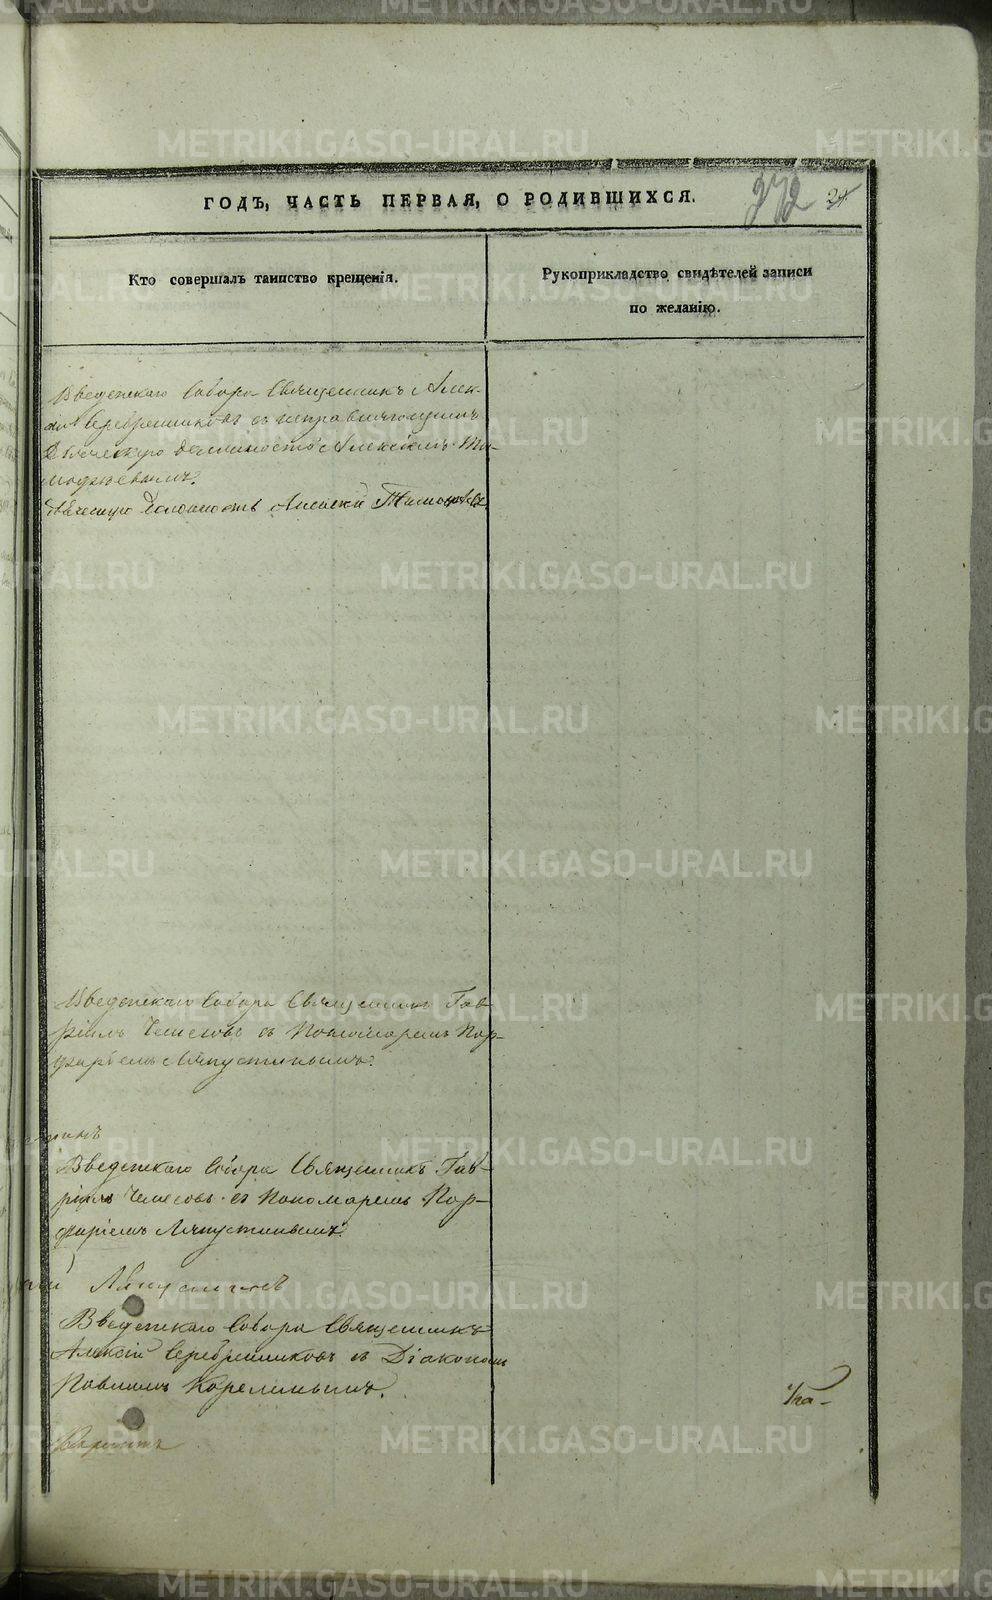 METRIKI.GASO-URAL.RU
272
ГОДЪ, ЧАСТЬ ПЕРВАЯ, О РОДИВШИХСЯ.
Кто совершалъ таинство крещенія.
Рукоприкладство свидѣтелей записи
по желанію.
Введенскаго Собора Священникъ Алек-
сій Серебренниковъ съ исправляющимъ
Дьяческую должность Алексѣемъ Ти-
мофѣевымъ.
должность Алексѣй Тимофѣевъ
Введенскаго Собора Священникъ Гав-
ріилъ съ Пономаремъ Пор-
фиріемъ Ляпустинымъ.
Введенскаго Собора Священникъ Гав-
ріилъ съ Пономаремъ Пор-
фиріемъ Ляпустинымъ.
Ляпустинъ
Введенскаго Собора Священникъ
Алексій Серебренниковъ съ Діакономъ
Павломъ Корелинымъ.